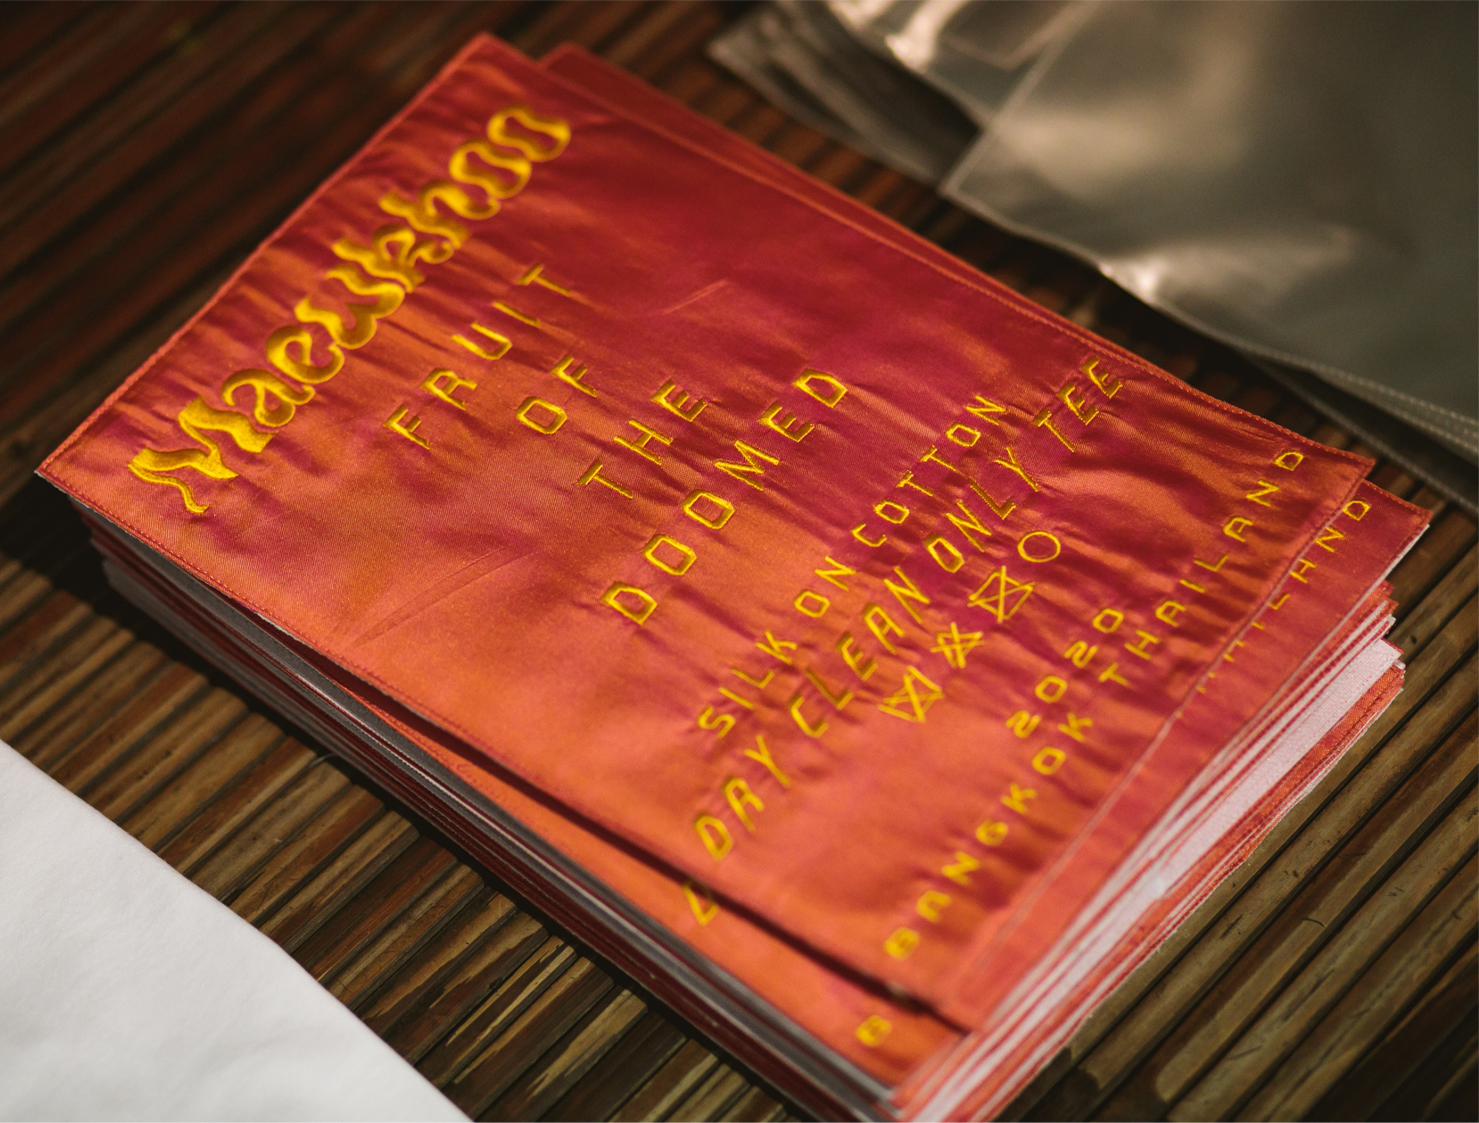 Maewkhoo
FRUIT
OF
THE
DOOMED
SILK ON COTTON
DRY CLEAN ONLY TEE
BANGKOK THAILAND
2020